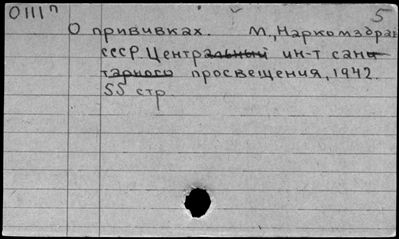 О111п 5
О прививках. М., Наркомздрав
СССР. Центральный ин-т сани
тарного просвещения, 1942.
55 стр